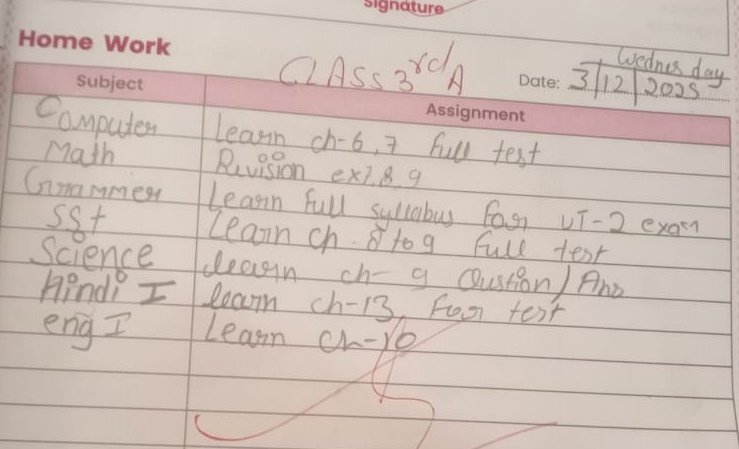 Signature
Home Work
CLASS 3rd A
Wednes day
Date: 3/12/2025
Subject Assignment
Computer Learn ch-6,7 full test
Math Revision ex 7,8,9
Grammer Learn full syllabus for UT-2 exam
SSt Learn ch-8 to 9 full test
Science Learn ch-9 Qustion/Ans
Hindi I learn ch-13, For test
eng I Learn ch-10